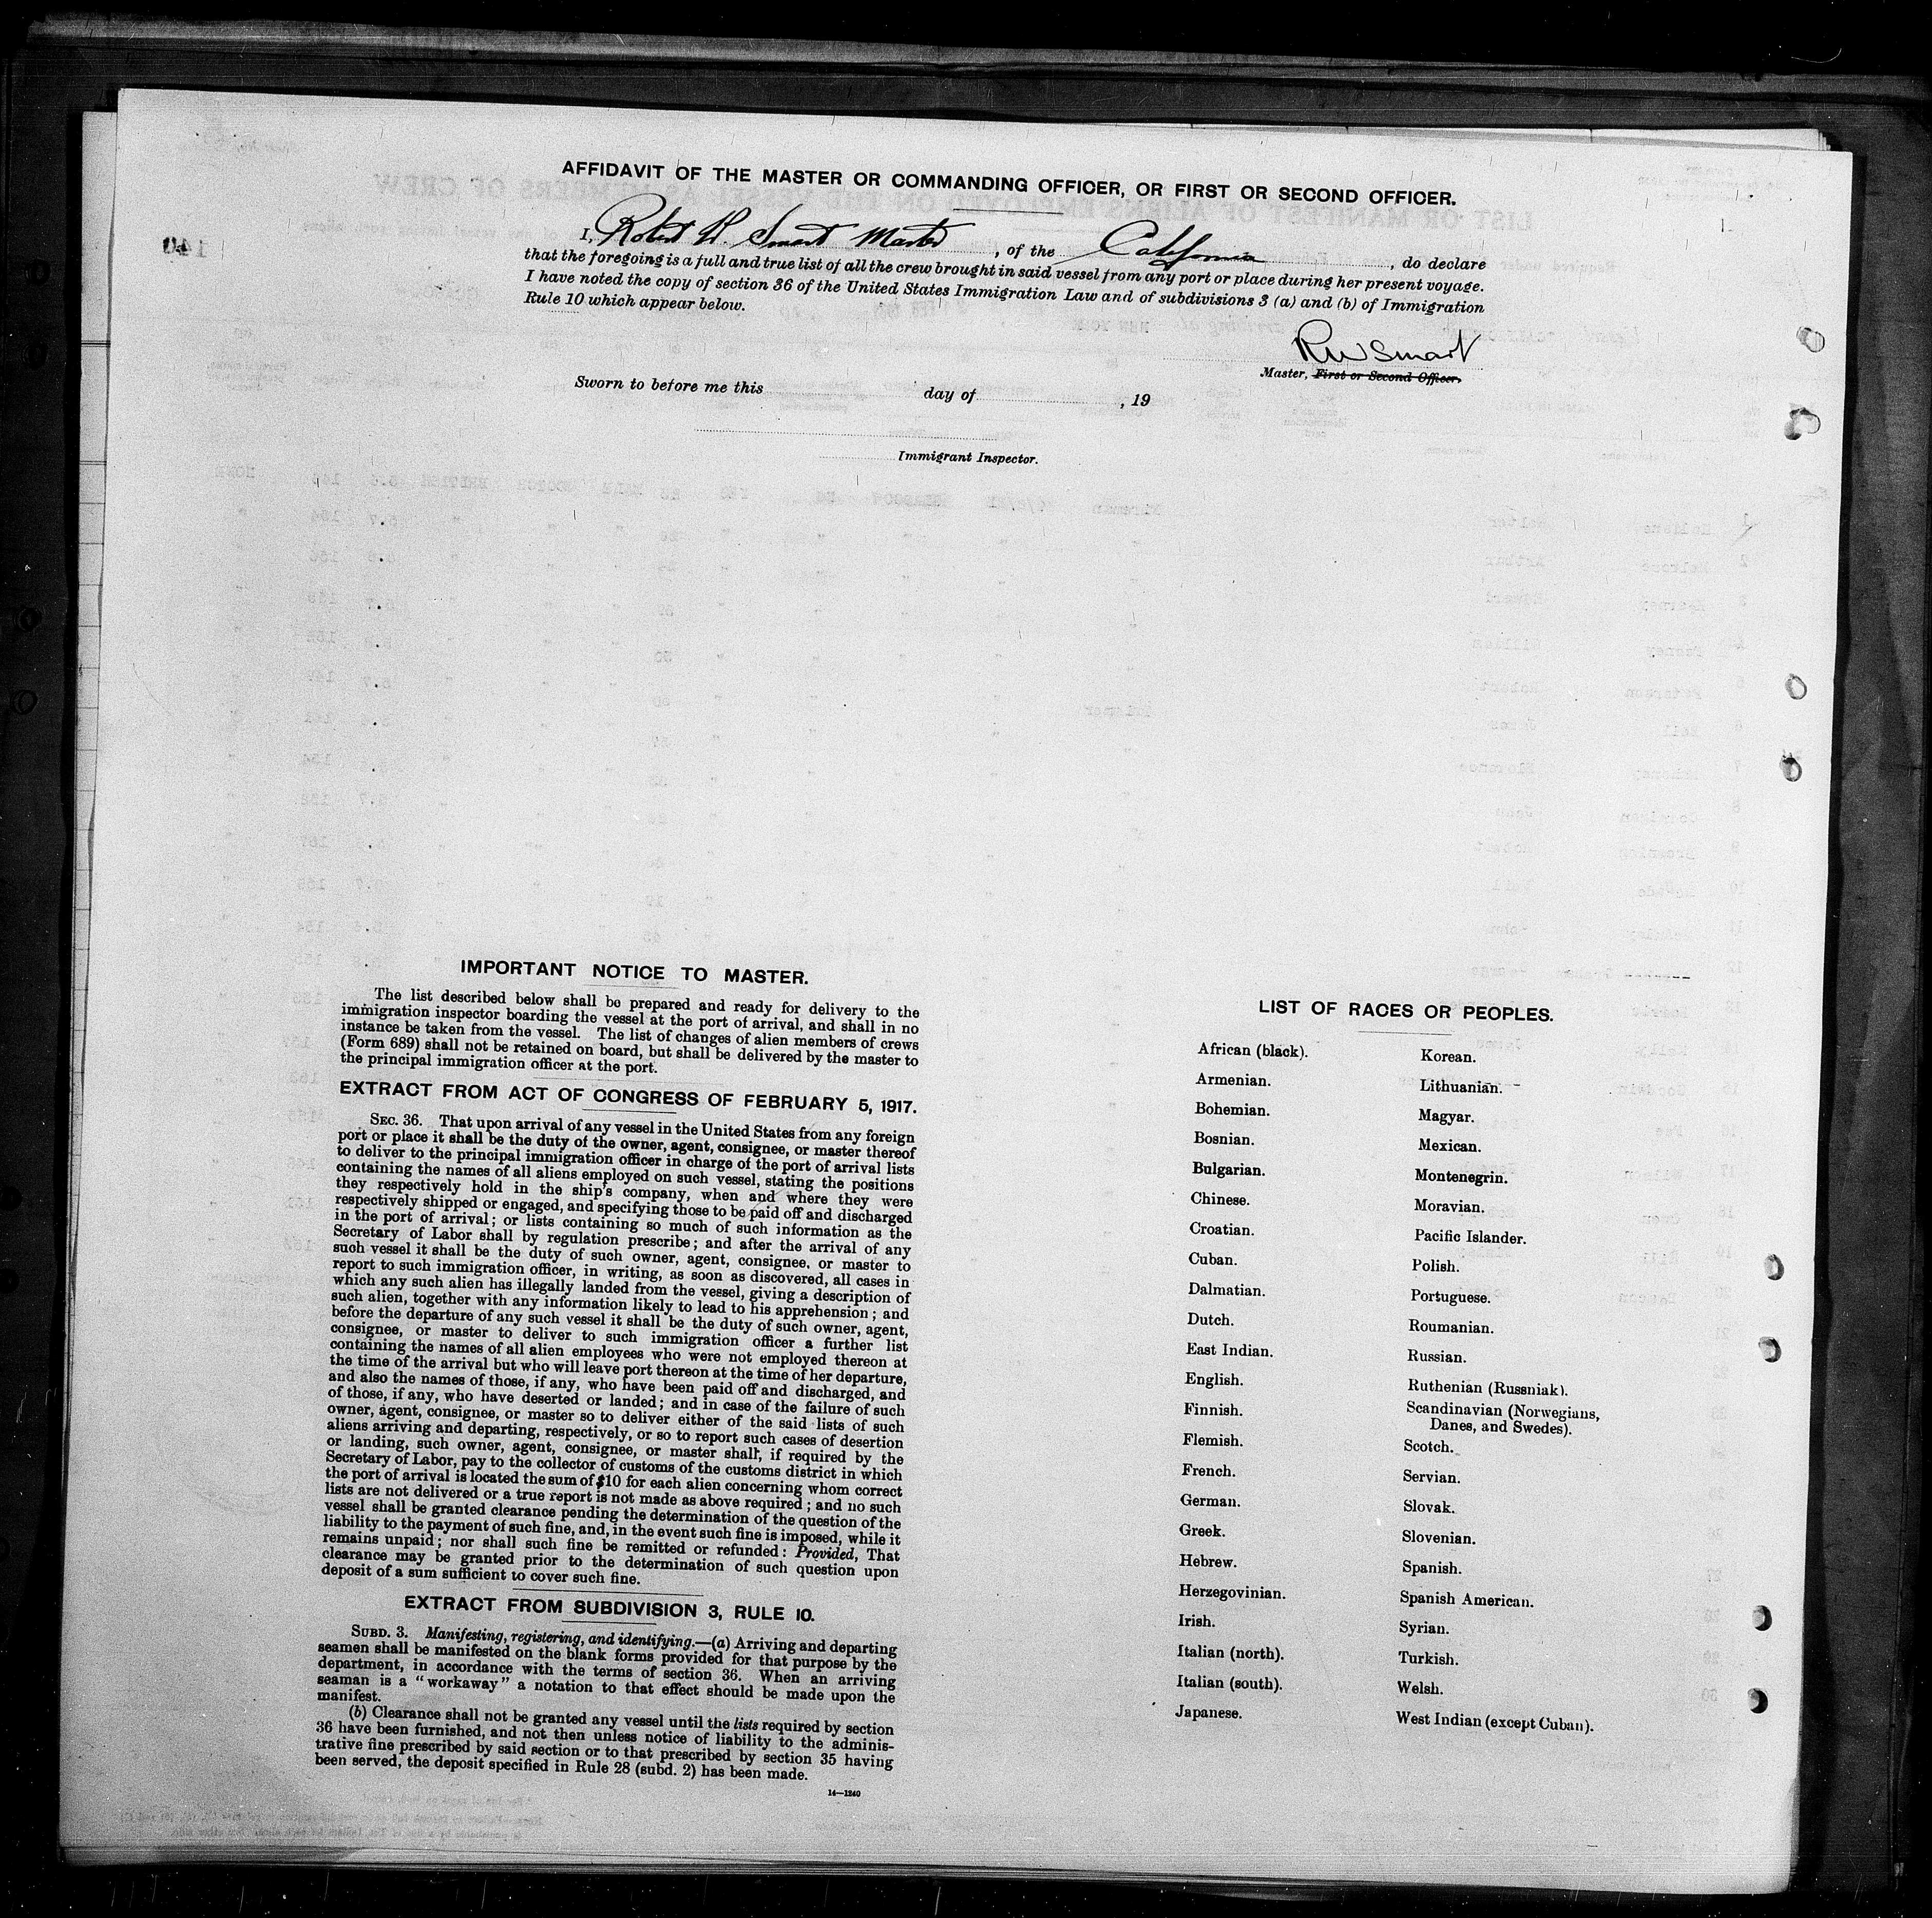 AFFIDAVIT OF THE MASTER OR COMMANDING OFFICER, OR FIRST OR SECOND OFFICER.
I, Robert W. Smart Master, of the California, do declare
that the foregoing is a full and true list of all the crew brought in said vessel from any port or place during her present voyage.
I have noted the copy of section 36 of the United States Immigration Law and of subdivisions 3 (a) and (b) of Immigration
Rule 10 which appear below.
RW Smart
Master, First or Second Officer.
Sworn to before me this day of , 19
Immigrant Inspector.
IMPORTANT NOTICE TO MASTER.
The list described below shall be prepared and ready for delivery to the
immigration inspector boarding the vessel at the port of arrival, and shall in no
instance be taken from the vessel. The list of changes of alien members of crews
(Form 689) shall not be retained on board, but shall be delivered by the master to
the principal immigration officer at the port.
EXTRACT FROM ACT OF CONGRESS OF FEBRUARY 5, 1917.
SEC. 36. That upon arrival of any vessel in the United States from any foreign
port or place it shall be the duty of the owner, agent, consignee, or master thereof
to deliver to the principal immigration officer in charge of the port of arrival lists
containing the names of all aliens employed on such vessel, stating the positions
they respectively hold in the ship's company, when and where they were
respectively shipped or engaged, and specifying those to be paid off and discharged
in the port of arrival; or lists containing so much of such information as the
Secretary of Labor shall by regulation prescribe; and after the arrival of any
such vessel it shall be the duty of such owner, agent, consignee, or master to
report to such immigration officer, in writing, as soon as discovered, all cases in
which any such alien has illegally landed from the vessel, giving a description of
such alien, together with any information likely to lead to his apprehension; and
before the departure of any such vessel it shall be the duty of such owner, agent,
consignee, or master to deliver to such immigration officer a further list
containing the names of all alien employees who were not employed thereon at
the time of the arrival but who will leave port thereon at the time of her departure,
and also the names of those, if any, who have been paid off and discharged, and
of those, if any, who have deserted or landed; and in case of the failure of such
owner, agent, consignee, or master so to deliver either of the said lists of such
aliens arriving and departing, respectively, or so to report such cases of desertion
or landing, such owner, agent, consignee, or master shall, if required by the
Secretary of Labor, pay to the collector of customs of the customs district in which
the port of arrival is located the sum of $10 for each alien concerning whom correct
lists are not delivered or a true report is not made as above required; and no such
vessel shall be granted clearance pending the determination of the question of the
liability to the payment of such fine, and, in the event such fine is imposed, while it
remains unpaid; nor shall such fine be remitted or refunded: Provided, That
clearance may be granted prior to the determination of such question upon
deposit of a sum sufficient to cover such fine.
EXTRACT FROM SUBDIVISION 3, RULE 10.
SUBD. 3. Manifesting, registering, and identifying.—(a) Arriving and departing
seamen shall be manifested on the blank forms provided for that purpose by the
department, in accordance with the terms of section 36. When an arriving
seaman is a "workaway" a notation to that effect should be made upon the
manifest.
(b) Clearance shall not be granted any vessel until the lists required by section
36 have been furnished, and not then unless notice of liability to the adminis-
trative fine prescribed by said section or to that prescribed by section 35 having
been served, the deposit specified in Rule 28 (subd. 2) has been made.
14—1240
LIST OF RACES OR PEOPLES.
African (black).
Armenian.
Bohemian.
Bosnian.
Bulgarian.
Chinese.
Croatian.
Cuban.
Dalmatian.
Dutch.
East Indian.
English.
Finnish.
Flemish.
French.
German.
Greek.
Hebrew.
Herzegovinian.
Irish.
Italian (north).
Italian (south).
Japanese.
Korean.
Lithuanian.
Magyar.
Mexican.
Montenegrin.
Moravian.
Pacific Islander.
Polish.
Portuguese.
Roumanian.
Russian.
Ruthenian (Russniak).
Scandinavian (Norwegians,
Danes, and Swedes).
Scotch.
Servian.
Slovak.
Slovenian.
Spanish.
Spanish American.
Syrian.
Turkish.
Welsh.
West Indian (except Cuban).